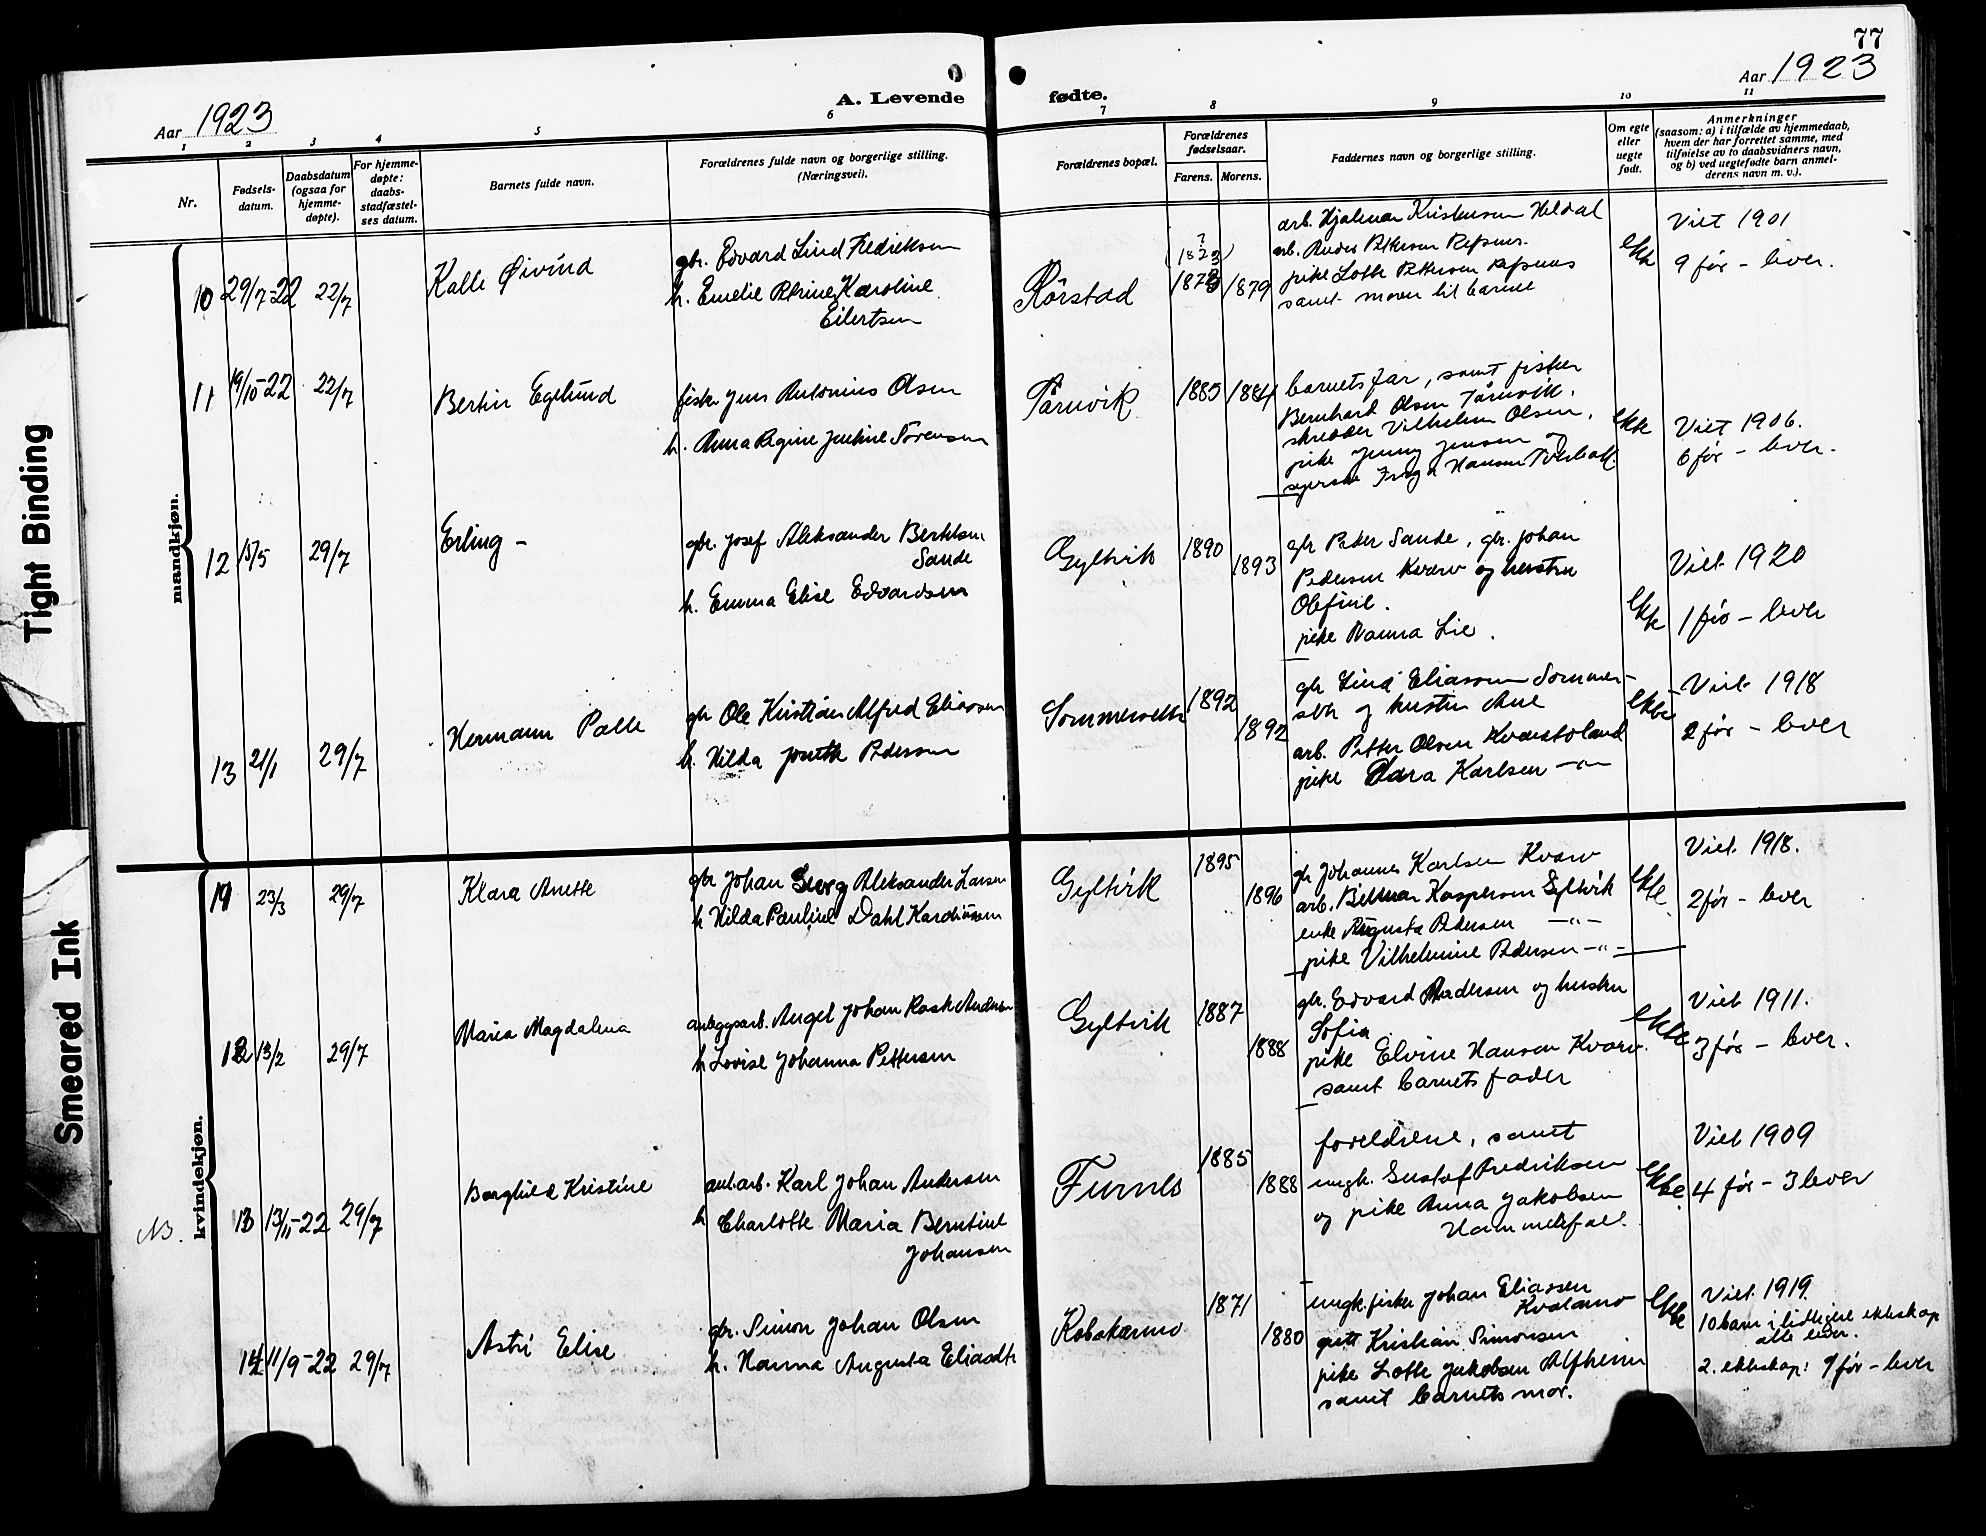 77
Aar 1923
A. Levende fødte.
Aar 1923
1 2 3 4 5 6 7 8 9 10 11
Nr.
Fødsels-
datum.
Daabsdatum
(ogsaa for
hjemme-
døpte).
For hjemme-
døpte:
daabs-
stadfæstel-
ses datum.
Barnets fulde navn.
Forældrenes fulde navn og borgerlige stilling.
(Næringsvei).
Forældrenes bopæl.
Forældrenes
fødselsaar.
Farens. Morens.
Faddernes navn og borgerlige stilling.
Om egte
eller
uegte
født.
Anmerkninger
(saasom: a) i tilfælde av hjemmedaab,
hvem der har forrettet samme, med
tilføielse av to daabsvidners navn,
og b) ved uegtefødte barn anmel-
derens navn m. v.).
mandkjøn.
10 29/7-22 22/7
Kalle Øivind
gbr. Edvard Lind Fredriksen
h. Emelie Petrine Karoline
Eilertsen
Rörstad
(1823)
?
1878 1879
arb. Hjalmar Kristensen Heldal
arb. Peder Pettersen Repsnes
pike Lotte Pettersen Repsnes
samt moren til barnet
ekte
Viet 1901
9 før - lever.
11 19/10-22 22/7
Bertin Egelund
fisker Jens Antonius Olsen
h. Anna Regine Justine Sörensen
Tårnvik
1885 1884
barnets far, samt fisker
Bernhard Olsen Tårnvik.
skredder Vilhelm Olsen.
pike Jenny Jensen og
syerske Hansen
ekte
Viet 1906.
6 før - lever.
12 15/5 29/7
Erling -
gbr. Josef Aleksander Bertelsen
Sande
h. Emma Elise Edvardsen
Gyltvik
1890 1893
gbr Peder Sande, gbr. Johan
Pedersen Kvarv og hustru
Olefine.
pike Ranna Lie.
ekte
Viet 1920
1 før - lever
13 21/1 29/7
Hermann Palle
gbr Ole Kristian Alfred Eliassen
h. Hilda Josette Pedersen
Sommersette
1892 1892
gbr Lind Eliassen Sommer-
sette og hustru Ane
arb. Petter Olsen Kvarstoland
pike Clara Karlsen -"-
ekte
Viet 1918
2 før - lever
kvindekjøn.
11 23/3 29/7
Klara Anette
gbr Johan Georg Aleksander Larsen
h Hilda Pauline Dahl Kardiasen
Gyltvik
1895 1896
gbr Johannes Karlsen Kvarv
arb. Kaspersen Gyltvik
enke Augusta Pedersen -"-
pike Vilhelmine Pedersen -"-
ekte
Viet 1918.
2 før - lever
12 13/2 29/7
Maria Magdalena
anleggsarb. Angel Johan Rask Andersen
h Lovise Johanna Pettersen
Gyltvik
1887 1888
gbr. Edvard Andersen og hustru
Sofia
pike Elvine Hansen Kvarv.
samt barnets fader
ekte
Viet 1911.
3 før - lever.
NB.
13 13/11-22 29/7
Borghild Kristine
anl.arb. Karl Johan Andersen
h Charlotte Maria Berntine
Johansen
Furnes
1885 1888
foreldrene, samt
ungk. Gustof Fredriksen
og pike Anna Jakobsen
Hammerfall
ekte
Viet 1909
4 før - 3 lever
14 11/9-22 29/7
Astri Elise
gbr. Simon Johan Olsen
h. Hanna Augusta Eliasdtr
Kobskarmo
1871 1880
ungk. fisker Johan Eliassen
Kvalarmo
gutt Kristian Simonsen
pike Lotte Jakobsen Alfheim
samt barnets mor.
ekte
Viet 1919
10 barn i tidligere ekteskap
alle lever.
2. ekteskap: 1 før - lever
Tight Binding
Smeared Ink